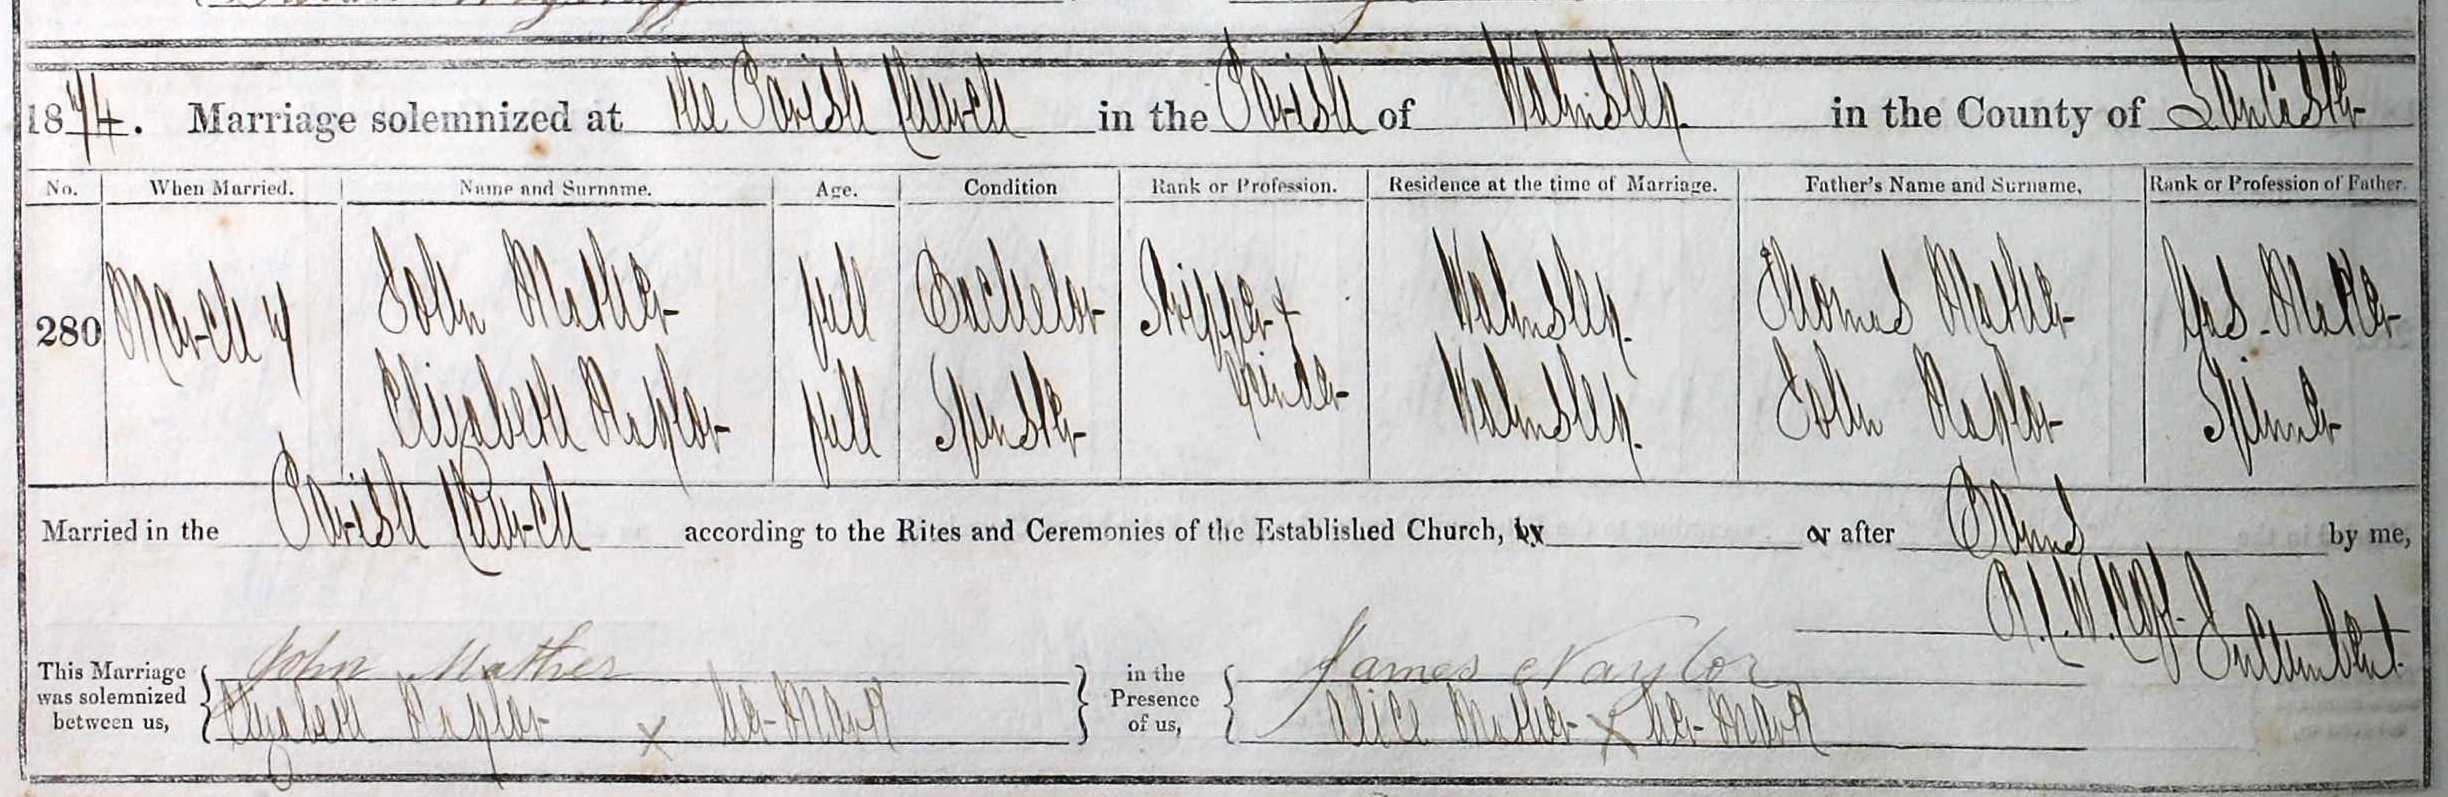 1874. Marriage solemnized at the Parish Church in the Parish of Walmsley in the County of Lancaster
No. When Married. Name and Surname. Age. Condition Rank or Profession. Residence at the time of Marriage. Father's Name and Surname, Rank or Profession of Father.
280 March 4 John Mather full Bachelor Stripper & Grinder Walmsley. Thomas Mather Gas-Maker
Elizabeth Naylor full Spinster Walmsley. John Naylor Spinner
Married in the Parish Church according to the Rites and Ceremonies of the Established Church, by or after Banns by me,
Incumbent.
This Marriage was solemnized between us, John Mather in the Presence of us, James Naylor
Elizabeth Naylor X her Mark Alice Mather X her Mark